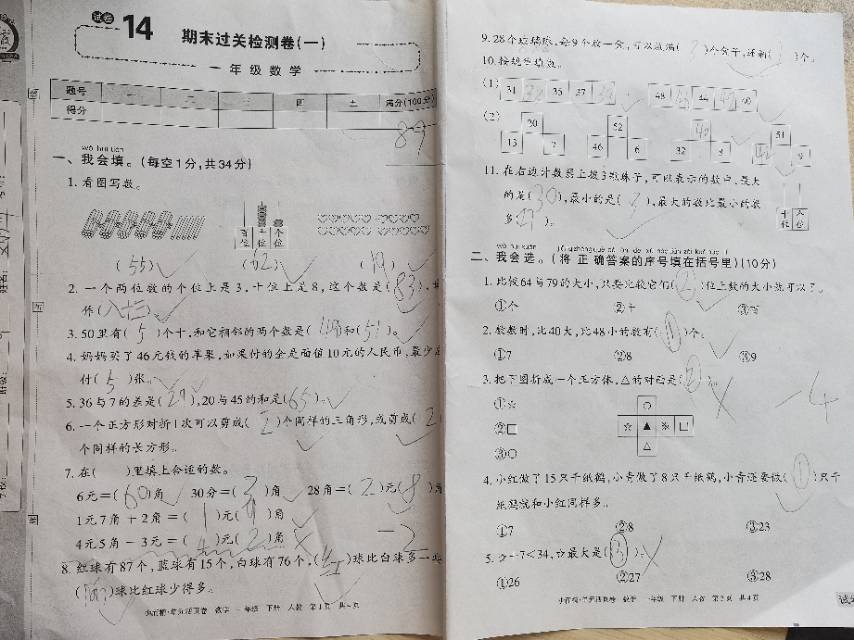 试卷 14 期末过关检测卷(一)
一年级数学
题号 一 二 三 四 五 满分(100分)
得分
89
wǒ huì tián
一、我会填。(每空1分,共34分)
1. 看图写数。
百位 十位 个位
(55) (62) (19)
2. 一个两位数的个位上是3,十位上是8,这个数是(83),
作(八十三)
3. 50里有(5)个十,和它相邻的两个数是(49)和(51)。
4. 妈妈买了46元钱的苹果,如果付的全是面值10元的人民币,最少
付(5)张。
5. 36与7的差是(29),20与45的和是(65)。
6. 一个正方形对折1次可以剪成(2)个同样的三角形,或剪成(2
个同样的长方形。
7. 在( )里填上合适的数。
6元=(60)角 30分=(3)角 28角=(2)元(8)
1元7角+2角=(1)元(9)角
4元5角-3元=( )元(2)角
-2
8. 红球有87个,蓝球有15个,白球有76个,(红)球比白球多一些
( )球比红球少得多。
一年级 下册 人教 第1页 共4页
9. 28个玻璃球,每9个放一盒,可以放满(3)个盒子,还剩( )个。
10. 按规律填数。
(1) 31 36 37 48 44 40
(2) 30 13 52 46 6 32 51
11. 在右边计数器上拨3颗珠子,可以表示的数中,最大
的是(30),最小的是(3),最大的数比最小的数
多(27)。
十位 个位
wǒ huì xuǎn
二、我会选。(将正确答案的序号填在括号里)(10分)
1. 比较64与79的大小,只要比较它们( )位上数的大小就可以了。
①个 ②十 ③百
2. 读数时,比40大,比48小的数有(①)个。
①7 ②8 ③9
3. 把下图折成一个正方体,△的对面是(②)。
①☆
②□
③○
○
☆ ▲ ※ □
△
-4
4. 小红做了15只千纸鹤,小青做了8只千纸鹤,小青还要做(①)只千
纸鹤就和小红同样多。
①7 ②8 ③23
5. -7<34, 最大是(③)
①26 ②27 ③28
一年级 下册 人教 第2页 共4页